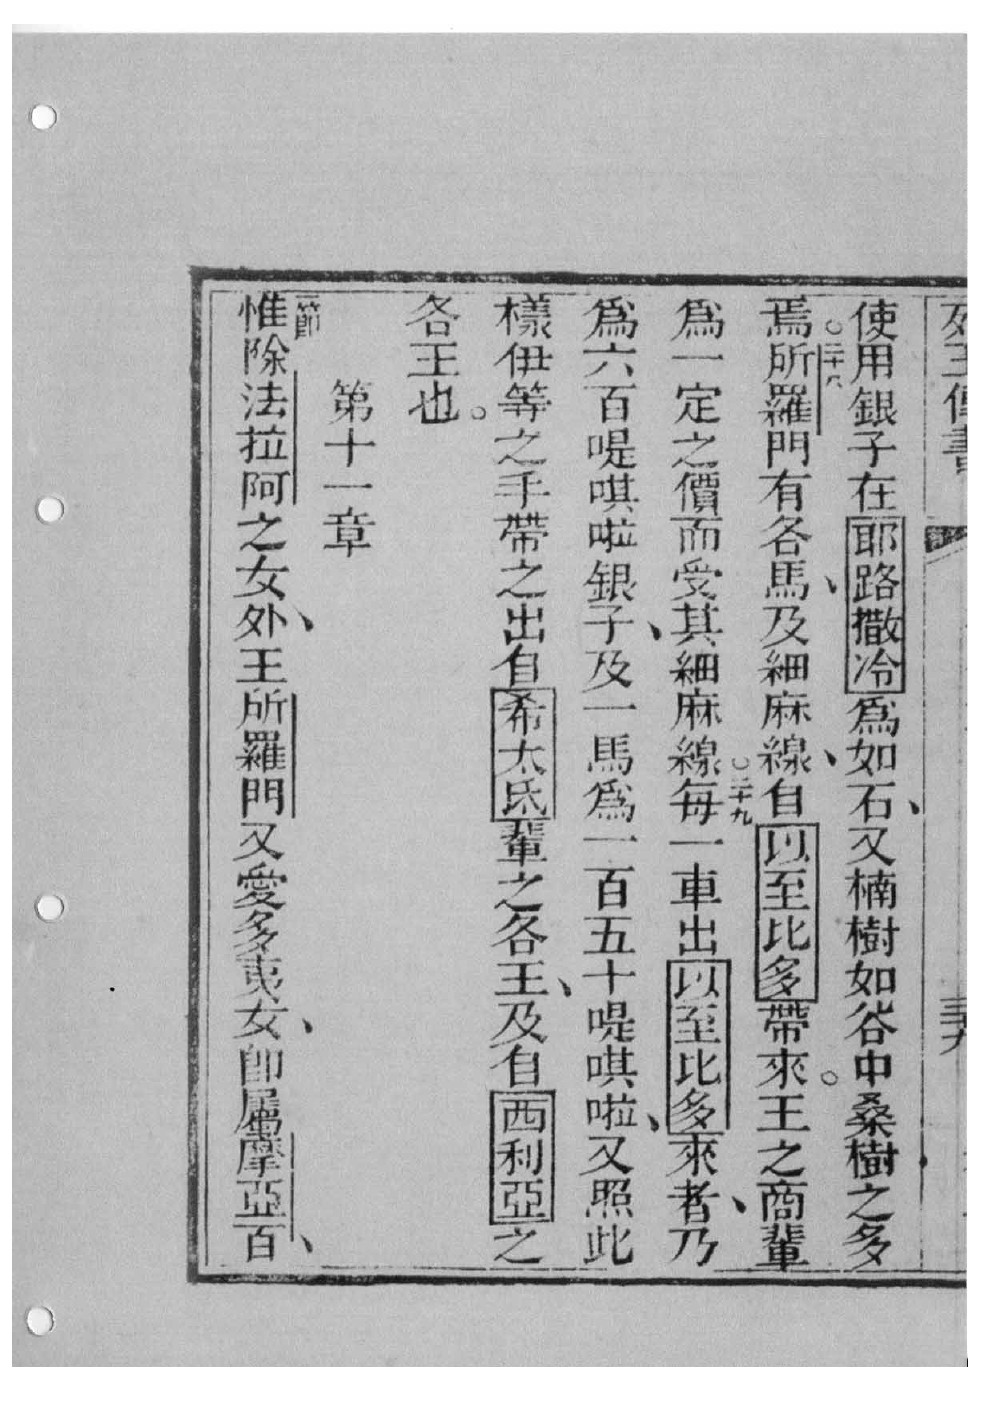 列王傳書
使用銀子在耶路撒冷爲如石、又楠樹如谷中桑樹之多
焉。○二十八所羅門有各馬、及細麻線、自以至比多帶來。王之商輩
爲一定之價而受其細麻線○二十九每一車出以至比多來者、乃
爲六百㖷唭啦銀子、及一馬爲一百五十㖷唭啦、又照此
樣伊等之手帶之出自希太氏輩之各王、及自西利亞之
各王也。
第十一章
一節惟除法拉阿之女外、王所羅門又愛多夷女、卽屬摩亞百、